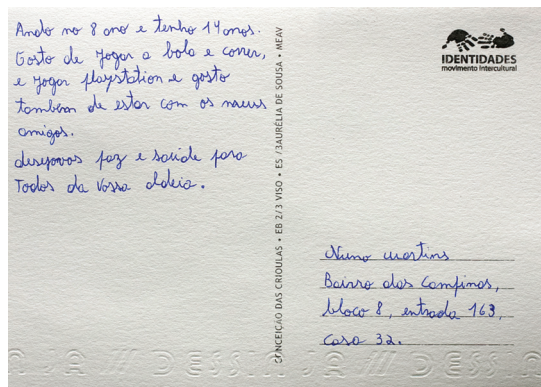 Ando no 8 ano e tenho 14 anos.
Gosto de jogar a bola e correr,
e jogar playstation e gosto
tambem de estar com os meus
amigos.
desejovos paz e saúde para
Todos da vossa aldeia.
CONCEIÇÃO DAS CRIOULAS • EB 2/3 VISO • ES /3AURÉLIA DE SOUSA • MEAV
IDENTIDADES
movimento intercultural
Nuno martins
Bairro das Campinas,
bloco 8, entrada 163,
casa 32.